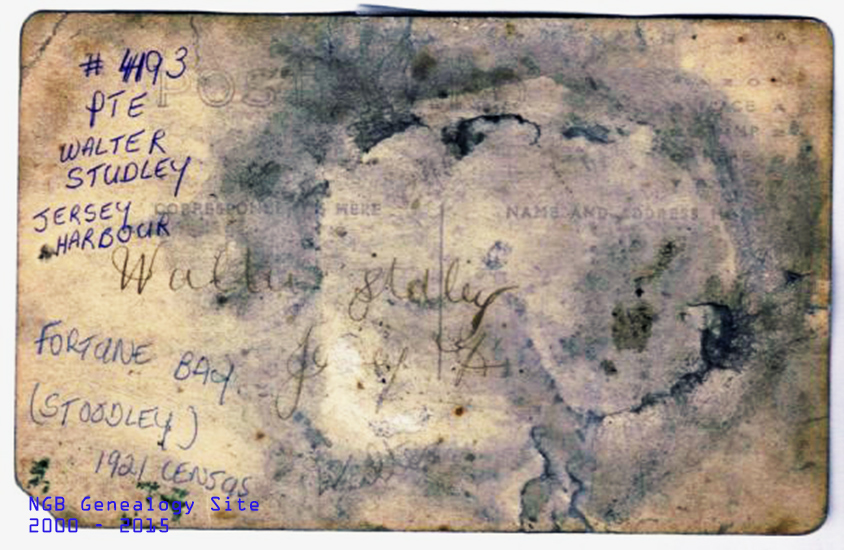 # 4193
PTE
WALTER
STUDLEY
JERSEY
HARBOUR
POST
CORRESPONDENCE HERE
NAME AND ADDRESS HERE
Walter Stdley
Jersey Hr.
FORTUNE BAY
(STOODLEY)
1921 CENSUS
NGB Genealogy Site
2000 - 2015